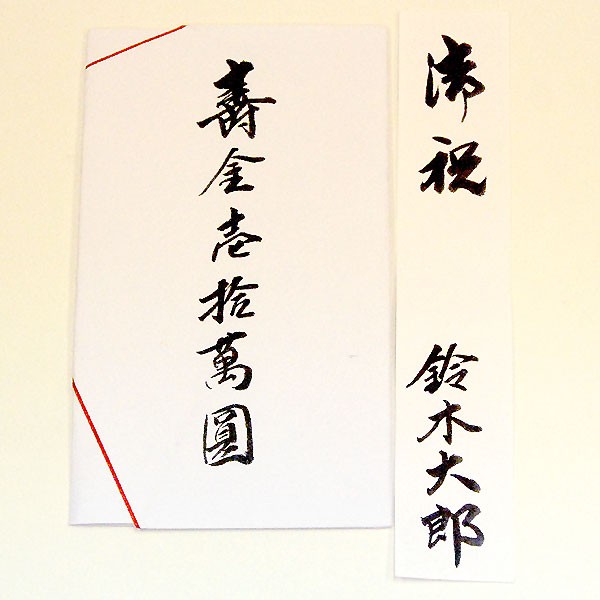 御祝 鈴木大郎
壽金壱拾萬圓